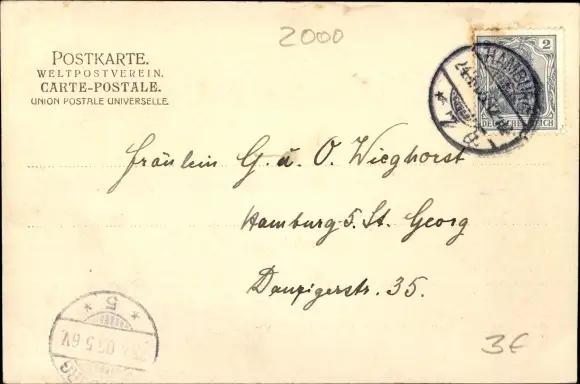 2000
POSTKARTE.
WELTPOSTVEREIN.
CARTE-POSTALE.
UNION POSTALE UNIVERSELLE.
2
DEUTSCHES REICH
HAMBURG
Fräulein G. u. O. Wieghorst
Hamburg-5. St. Georg
Danzigerstr. 35.
5
3€